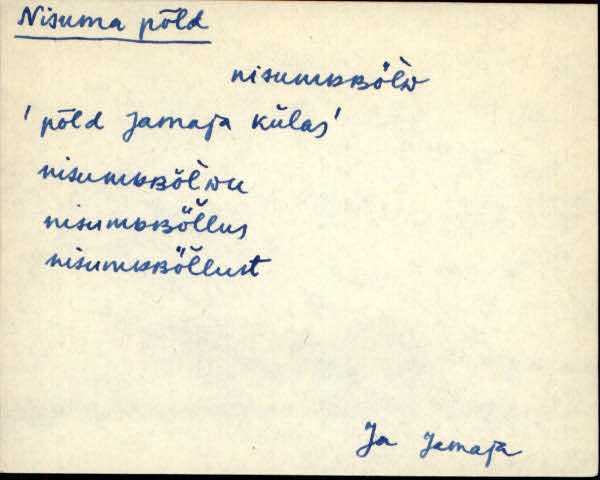 Nisuma põld
nisumaʙõ̀lᴅ
'põld Jamaja külas'
nisumaʙõ̀lᴅu
nisumaʙõ̆llus
nisumaʙõ̆llust
Ja Jamaja